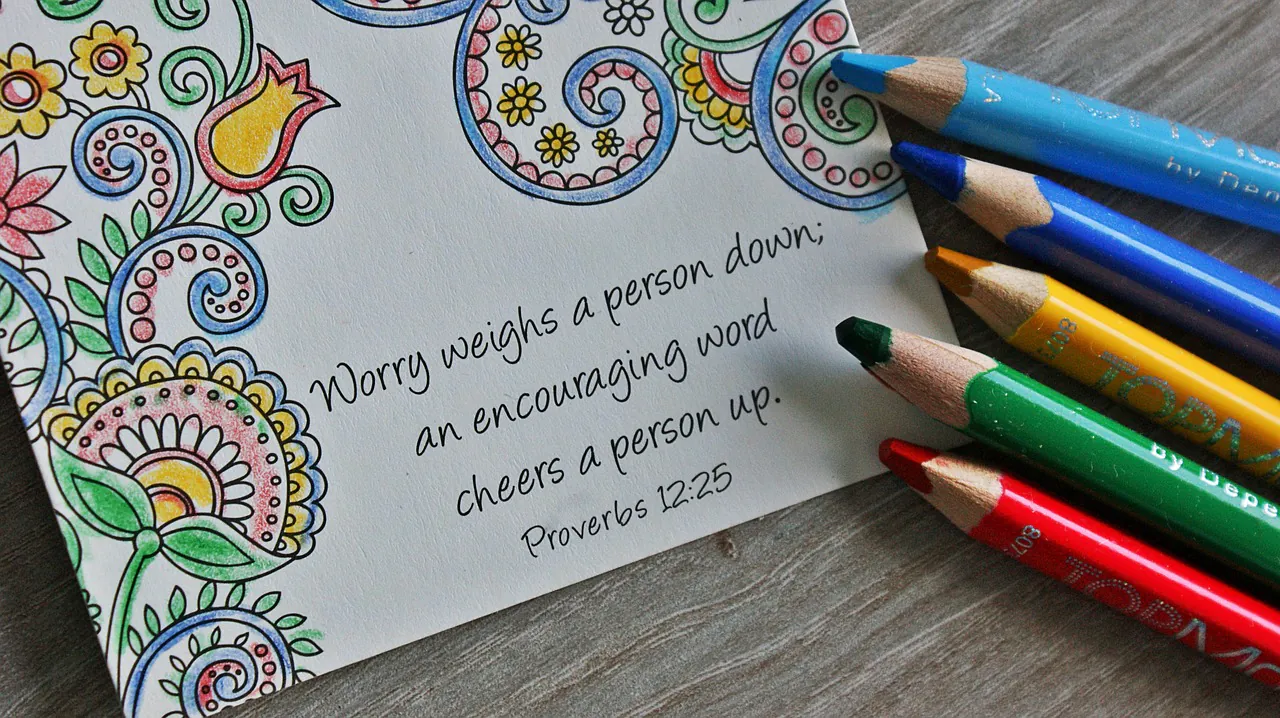 Worry weighs a person down;
an encouraging word
cheers a person up.
Proverbs 12:25
by Den
8077
TOPM
by Depe
807
TOPMO